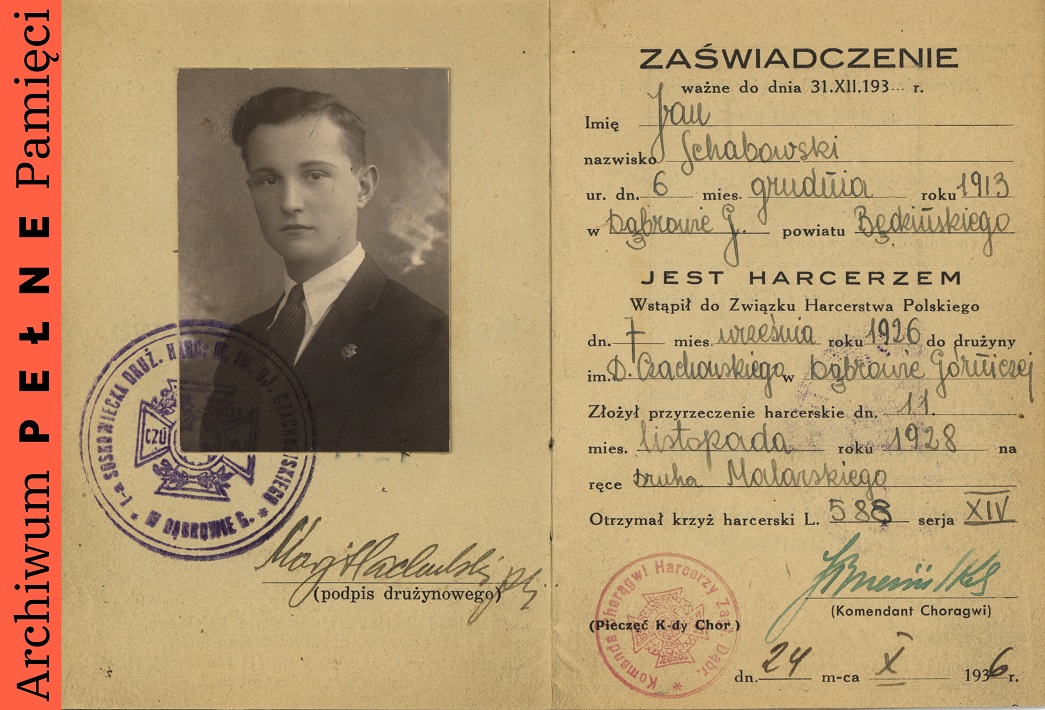 Archiwum PEŁNE Pamięci
1-a SOSNOWIECKA DRUŻ. HARC.
CZU
W DĄBROWIE G.
(podpis drużynowego)
ZAŚWIADCZENIE
ważne do dnia 31.XII.193 r.
Imię Jan
nazwisko Schabowski
ur. dn. 6 mies. grudnia roku 1913
w Dąbrowie G. powiatu Będzińskiego
JEST HARCERZEM
Wstąpił do Związku Harcerstwa Polskiego
dn. 7 mies. września roku 1926 do drużyny
im. D. Czachowskiego w Dąbrowie Górniczej
Złożył przyrzeczenie harcerskie dn. 11.
mies. listopada roku 1928 na
ręce druha Malarskiego
Otrzymał krzyż harcerski L. 588 serja XIV
(Komendant Choragwi)
Komenda Chorągwi Harcerzy Zagł. Dąbr.
(Pieczęć K-dy Chor.)
dn. 24 m-ca X 1936 r.